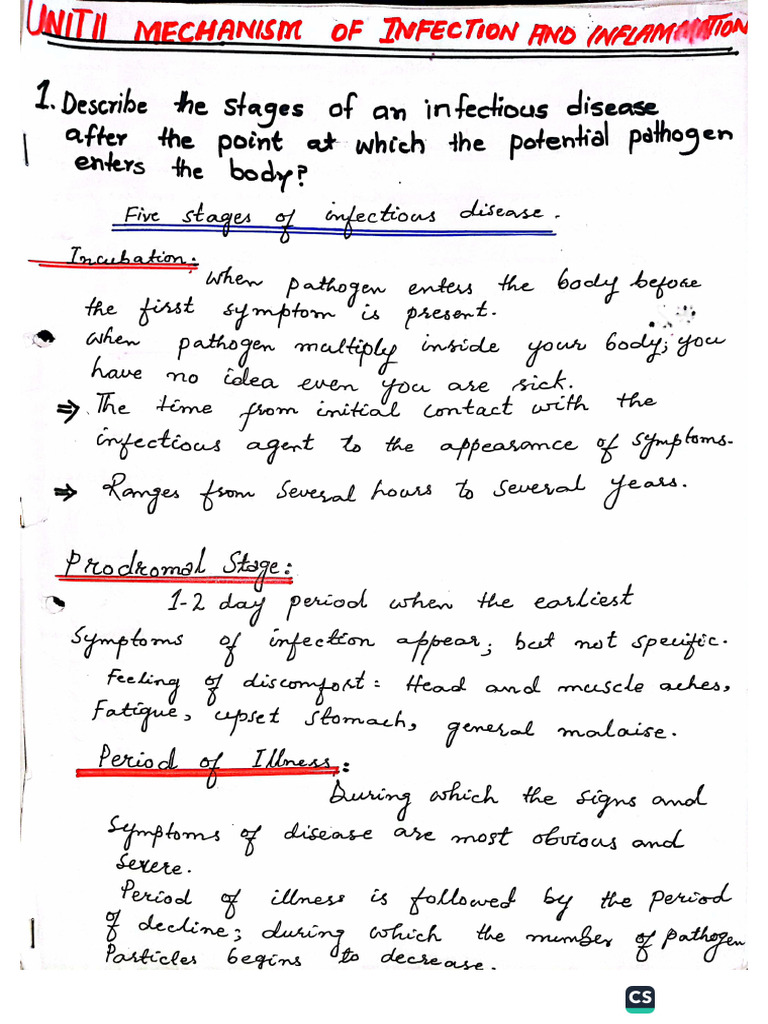 UNIT II MECHANISM OF INFECTION AND INFLAMMATION
1. Describe the stages of an infectious disease
after the point at which the potential pathogen
enters the body?
Five stages of infectious disease.
Incubation:
When pathogen enters the body before
the first symptom is present.
When pathogen multiply inside your body; you
have no idea even you are sick.
⇒ The time from initial contact with the
infectious agent to the appearance of symptoms.
⇒ Ranges from several hours to several years.
Prodromal Stage:
1-2 day period when the earliest
Symptoms of infection appear; but not specific.
Feeling of discomfort: Head and muscle aches,
Fatigue, upset stomach, general malaise.
Period of Illness:
During which the signs and
Symptoms of disease are most obvious and
Severe.
Period of illness is followed by the period
of decline; during which the number of pathogen
Particles begins to decrease.
CS